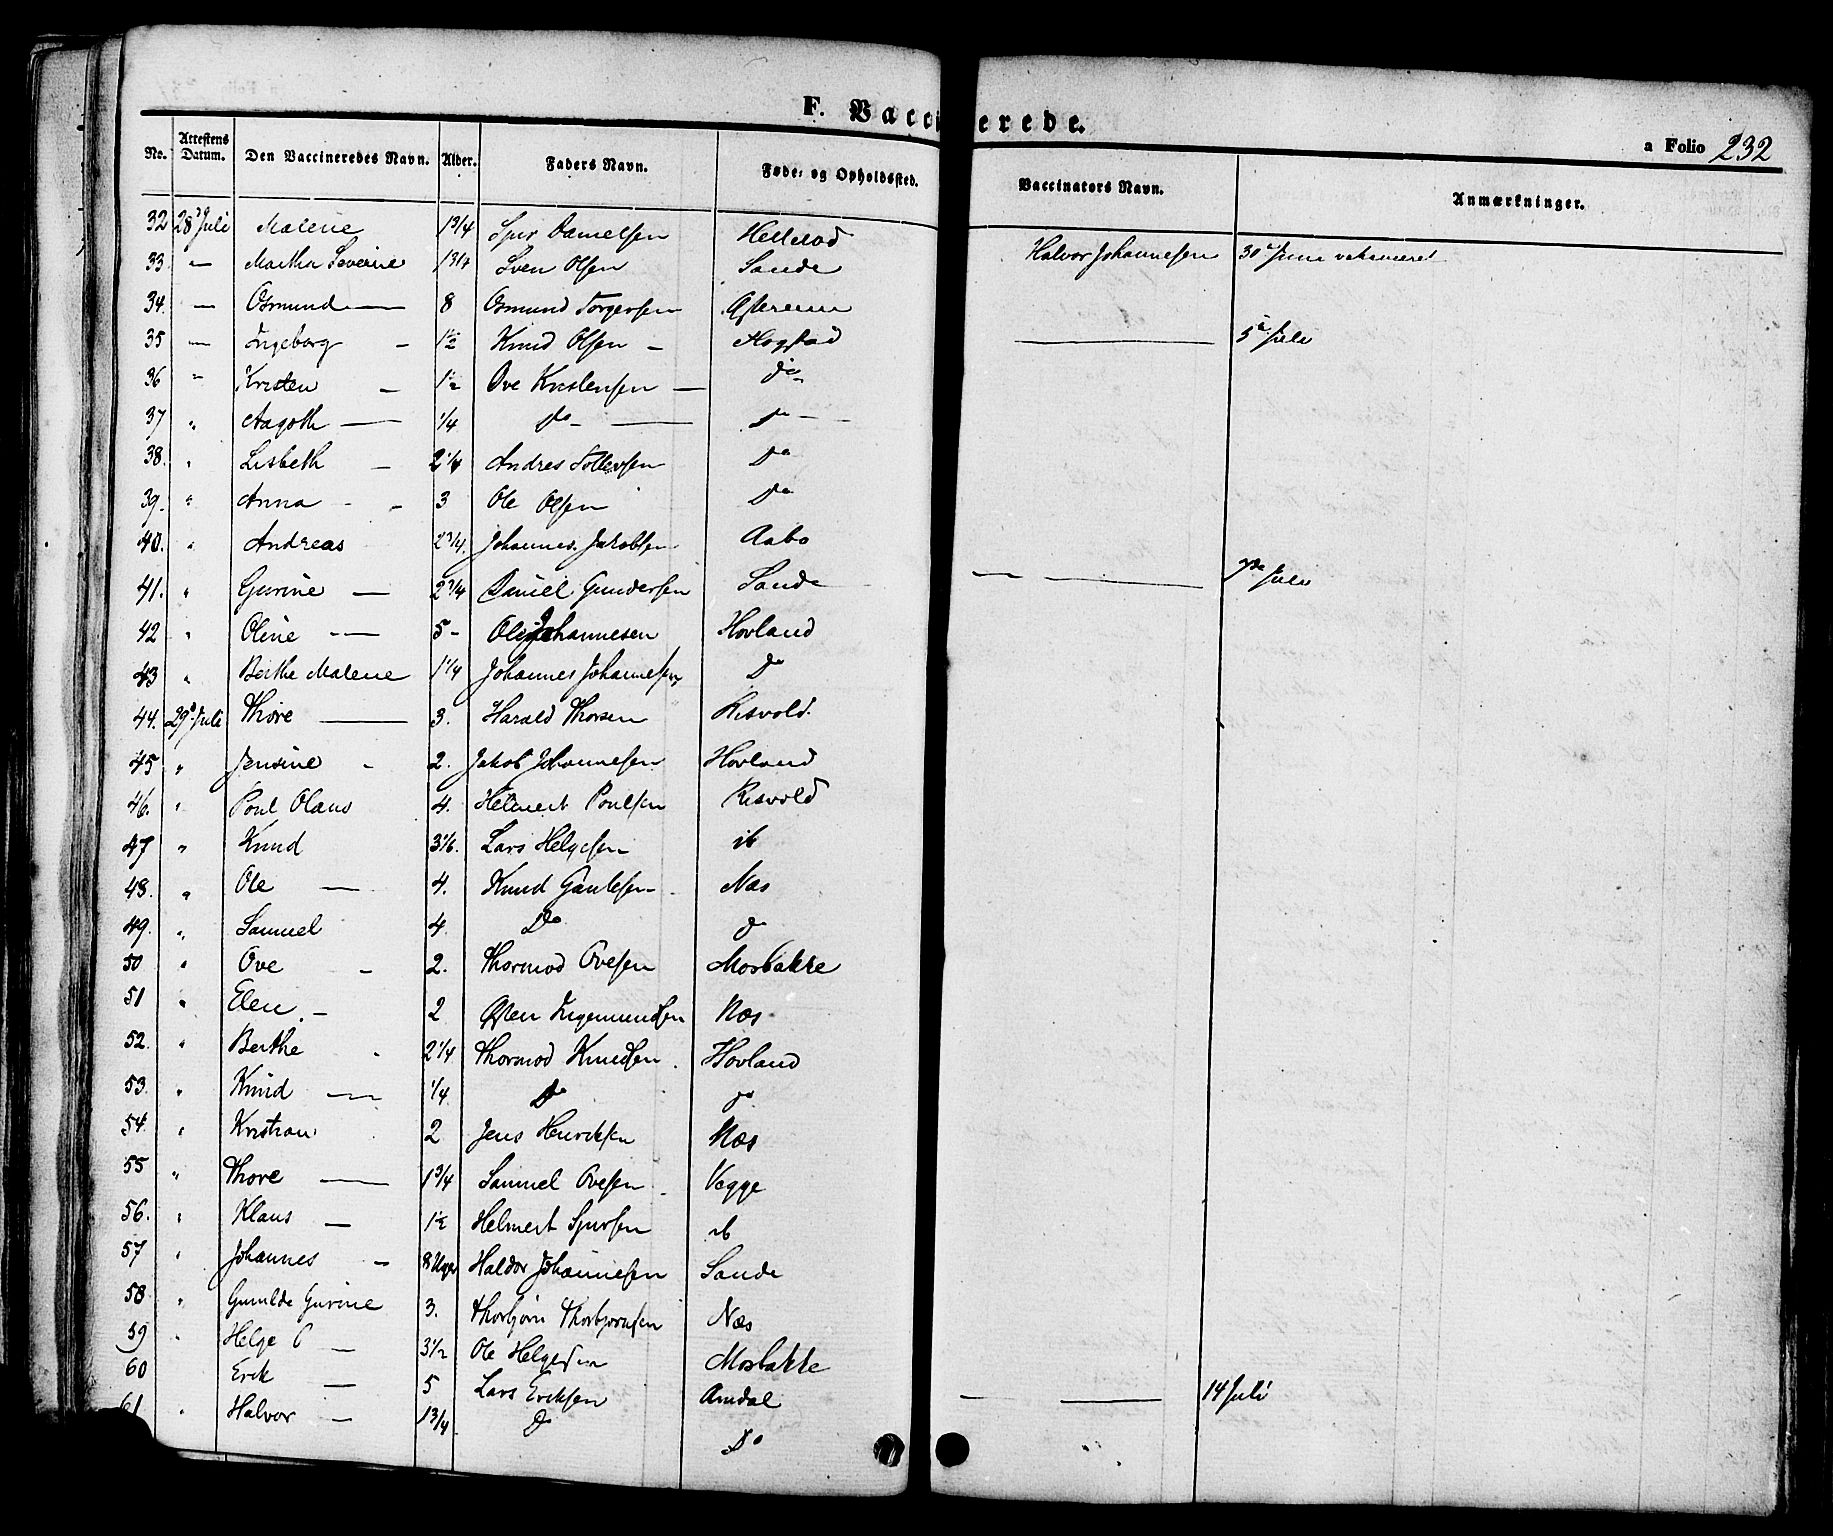 F. Vaccinerede.
a Folio 232
No. Attestens Datum. Den Vaccineredes Navn. Alder. Faders Navn. Føde- og Opholdssted. Vaccinators Navn. Anmærkninger.
32 28 Juli Malene 1 3/4 Sjur Danielsen Hellelod Halvor Johannesen 30 Juni
33. — Martha Severine 1 3/4 Sven Olsen Sande
34. — Osmund — 8 Osmund Torgersen
35 — Ingeborg - 1½ Knud Olsen — Hogstad — 5 Juli
36 " Kristen — 1½ Ove Kristensen — do
37 " Aagoth — 1/4 do — do —
38. " Lisbeth — 2 1/4 Andres Tollevsen Do
39. " Anna - - 3 Ole Olsen Do
40. " Andreas 2 3/4 Johannes Jakobsen Aabo
41. " Gurine — 2 3/4 Daniel Gundersen Sande — — 7de Juli
42 " Oline — 5 - Ole Johannesen Hovland
43 " Berthe Malene 1 1/4 Johannes Johannesen Do
44. 29 Juli Thore — 3. Harald Thorsen Risvold.
45 " Jensine - 2. Jakob Johannesen Hovland
46. " Poul Olaus 4. Helmert Poulsen Risvold
47 " Knud 3 1/6. Lars Helgesen ib
48. " Ole — 4. Knud Gautesen - Næs
49. " Samuel 4. Do do
50 " Ove - 2. Thormod Ovesen Mosbakke
51 " Elen. - 2 Osten Ingemundsen Næs
52. " Berthe 2 1/4 Thormod Knudsen. Hovland
53. " Knud — 1/4 Do do
54. " Kristian 2 Jens Henriksen Næs
55 " Thore — 1 3/4 Samuel Ovesen Vagge
56. " Klaus — 1½ Helmert Sjursen ib
57 " Johannes — 8 Uger Haldor Johannesen Sande
58. " Gunilde Gurine 3. Thorbjørn Thorbjørnsen Næs
59 " Helge — 3 1/2 Ole Helgesen Mosbakke
60 Erik — 5 Lars Eriksen Amdal — — 14 Juli
61 " Halvor — 1 3/4 Do Do